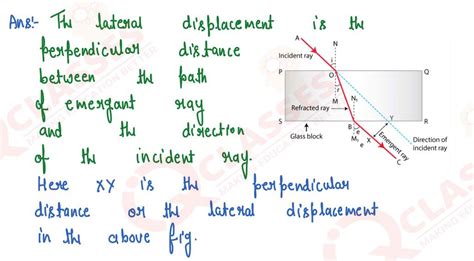 Ans:- The lateral displacement is the
perpendicular distance
between the path
of emergant ray
and the direction
of the incident ray.
Here XY is the perpendicular
distance or the lateral displacement
in the above fig.
A
N
Incident ray
i
P
O
Q
r
M
N₁
Refracted ray
S
B
Y
R
Glass block
M₁
e
X
Emergent ray
C
Direction of
incident ray
CLASSES
MAKING EDUCATION BETTER